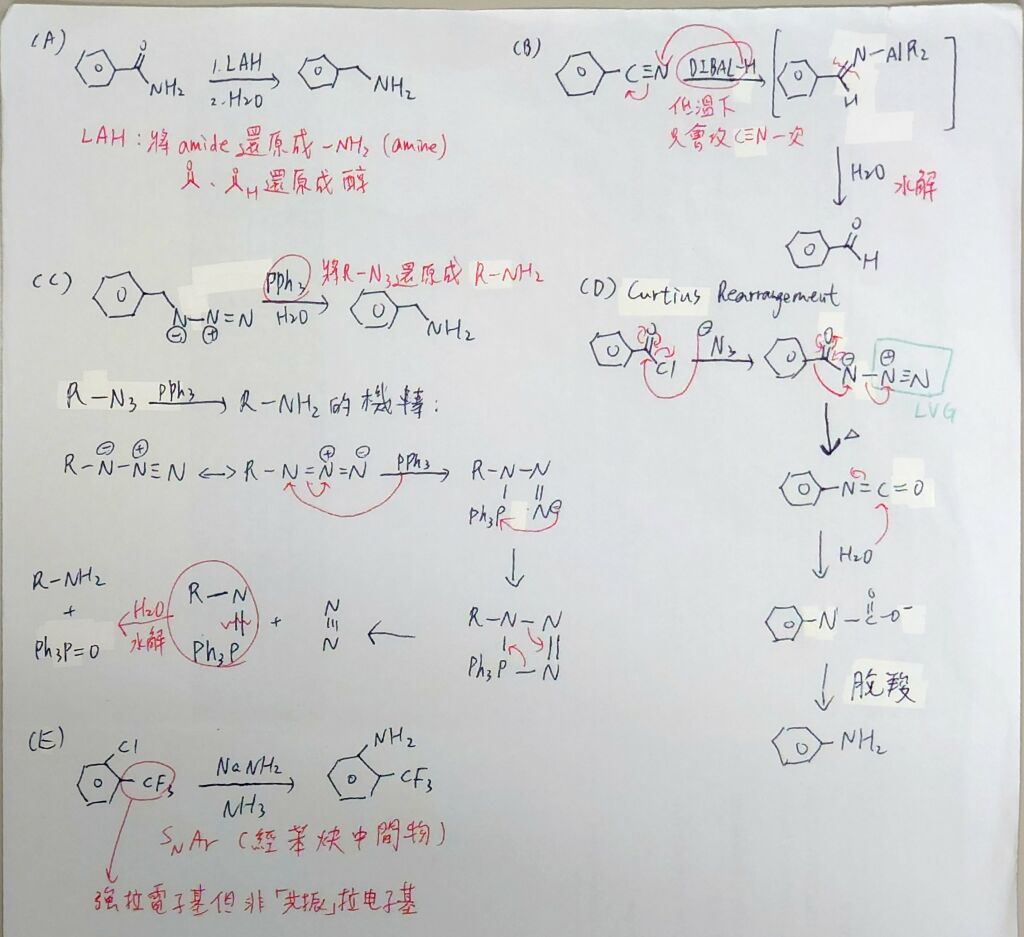 (A)
O
NH2
1. LAH
2. H2O
NH2
LAH:將 amide 還原成 -NH2 (amine)
還原成醇
(B)
C≡N
DIBAL-H
低溫下
只會攻 C≡N 一次
N-AlR2
H
H2O 水解
O
H
(C)
N-N=N
⊖ ⊕
PPh3
H2O
將R-N3還原成 R-NH2
NH2
R-N3 PPh3 R-NH2 的機轉:
R-N-N≡N ↔ R-N=N=N PPh3 R-N-N
Ph3P N⊖
R-N-N
Ph3P-N
N≡N
+
R-N
Ph3P
H2O
水解
R-NH2
+
Ph3P=O
(D) Curtius Rearrangement
O
Cl
⊖N3
O
N-N≡N
LVG
△
N=C=O
H2O
N-C-O-
O
脫羧
NH2
(E)
Cl
CF3
NaNH2
NH3
NH2
CF3
SNAr (經苯炔中間物)
強拉電子基但非「共振」拉电子基